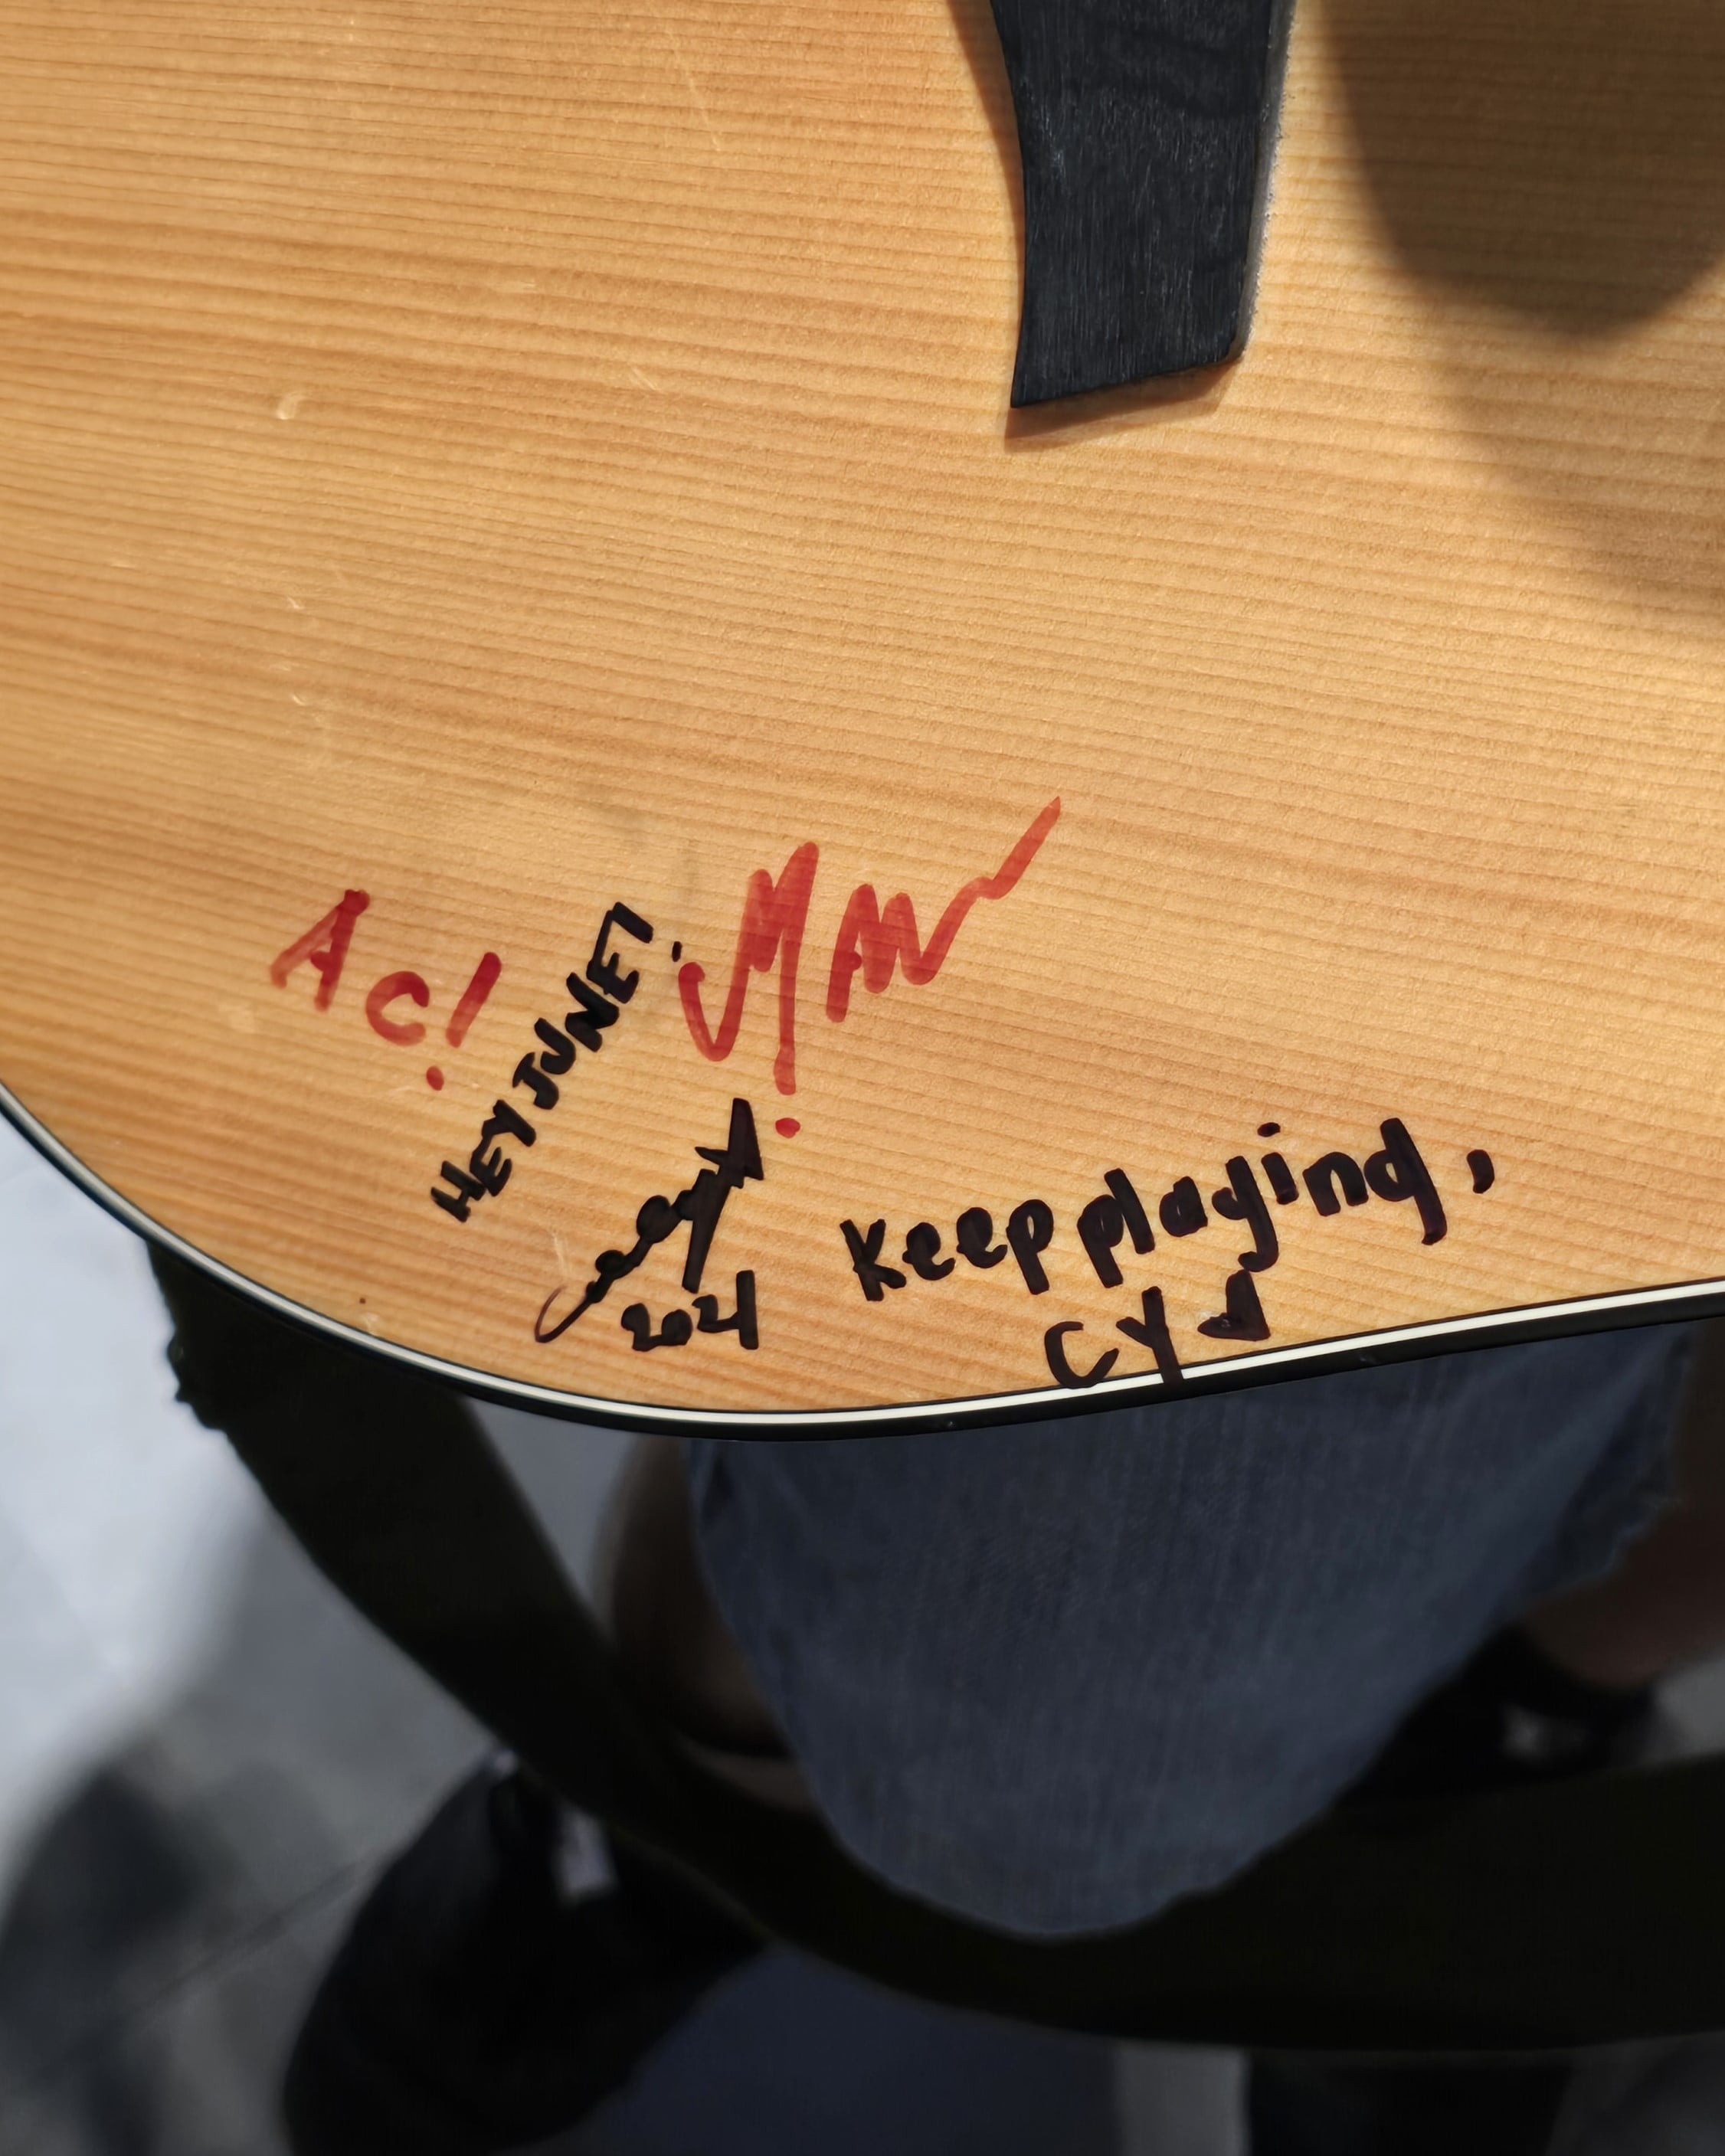 AC!
HEY JUNE!
MAN!
2021
Keep playing,
CY